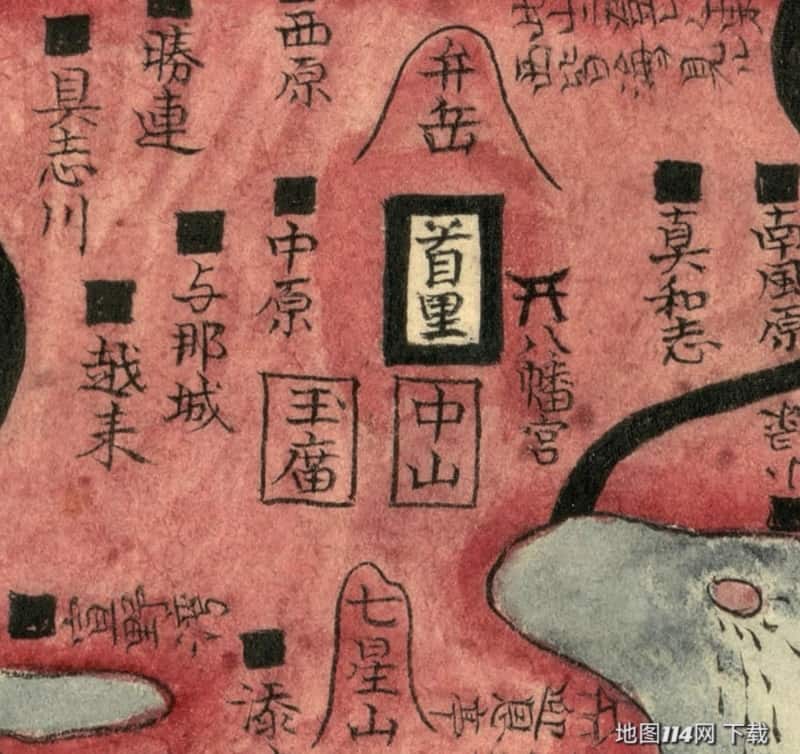 南風原
真和志
八幡宮
弁岳
首里
中山
西原
中原
玉廣
勝連
与那城
具志川
越来
宜野湾
添
七星山
地图114网 下载